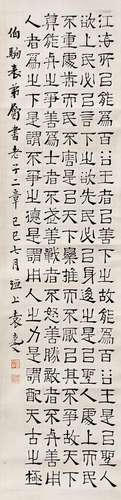 江海所㠯能為百谷王者㠯其善下之故能為百谷王是㠯聖人
欲上民必㠯言下之欲先民必㠯身後之是㠯聖人處上而民
不重處前而民不害是㠯天下樂推而不厭㠯其不爭故天下
莫能與之爭善為士者不武善戰者不怒善勝敵者不與善用
人者為之下是謂不爭之德是謂用人之力是謂配天古之極
伯駒表弟屬書老子二章己巳七月洹上袁克文